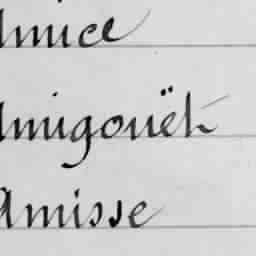 Amice
Amigouët
Amisse